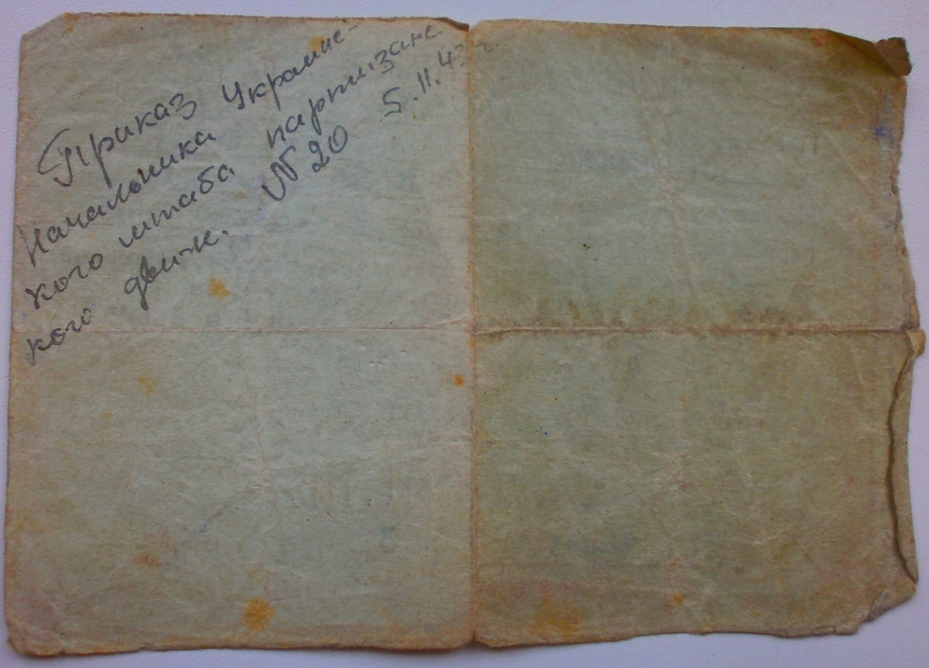 Приказ
Начальника Украинс-
кого штаба партизанс
кого движ. № 20 5.11.43 г.